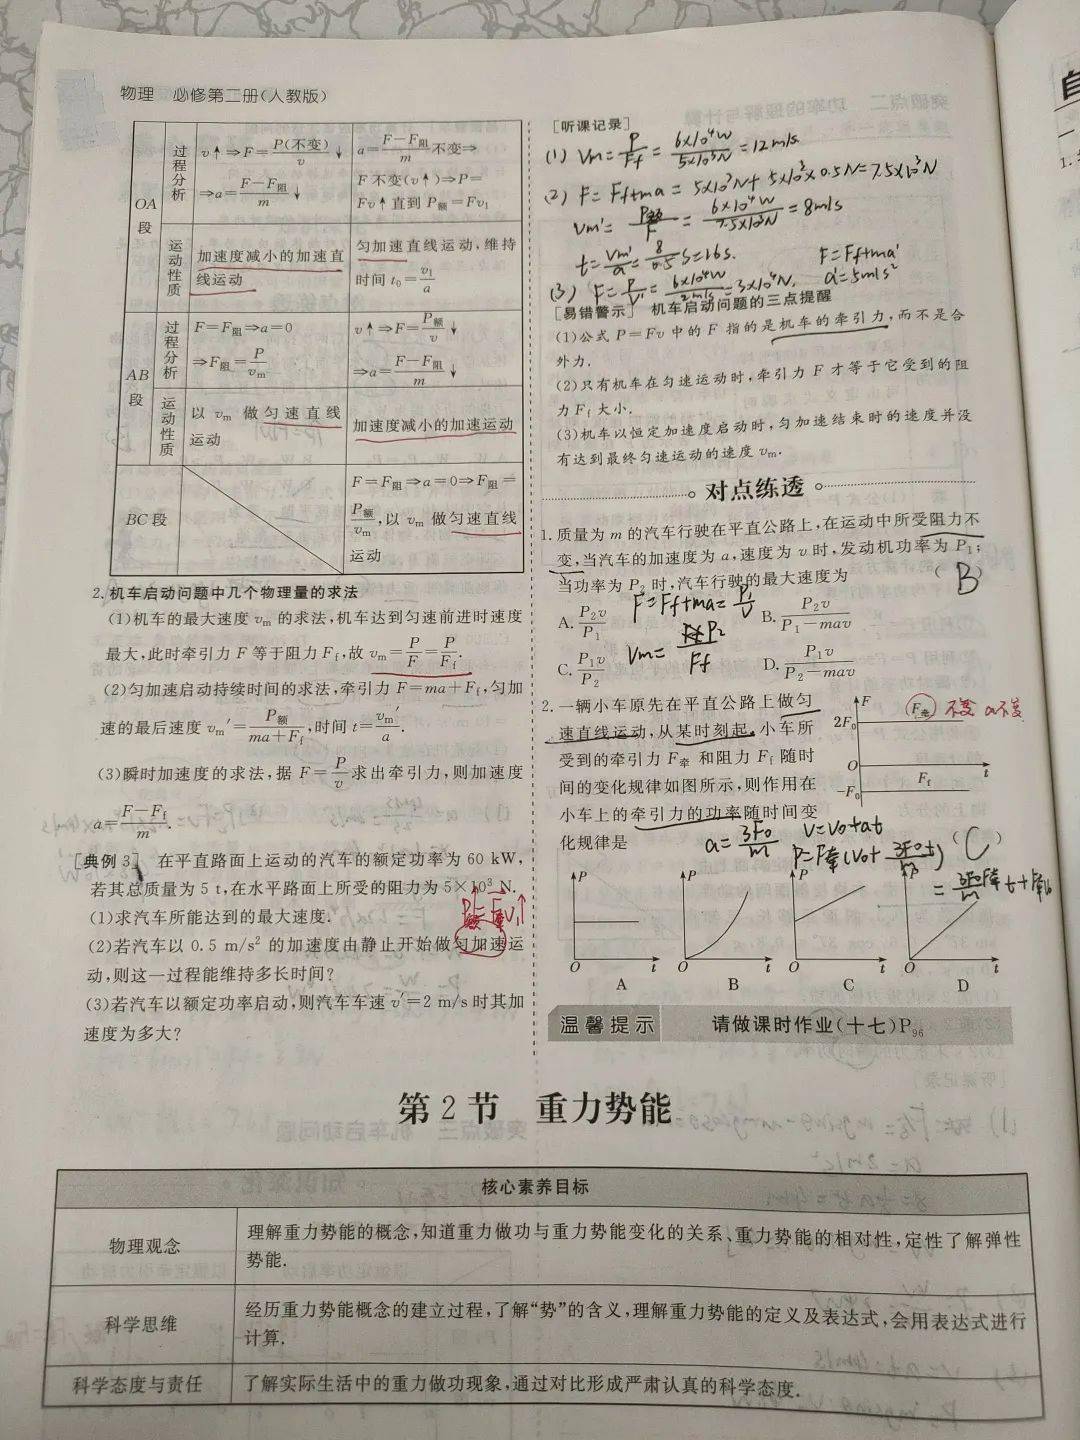 物理 必修第二册(人教版)
OA段
过程分析
v↑⇒F=P(不变)/v↓
⇒a=(F-F阻)/m↓
a=(F-F阻)/m不变⇒
F不变(v↑)⇒P=
Fv↑直到P额=Fv₁
运动性质
加速度减小的加速直
线运动
匀加速直线运动,维持
时间t₀=v₁/a
AB段
过程分析
F=F阻⇒a=0
⇒F阻=P/vm
v↑⇒F=P额/v↓
⇒a=(F-F阻)/m↓
运动性质
以vm做匀速直线
运动
加速度减小的加速运动
BC段
F=F阻⇒a=0⇒F阻=
P额/vm,以vm做匀速直线
运动
2.机车启动问题中几个物理量的求法
(1)机车的最大速度vm的求法,机车达到匀速前进时速度
最大,此时牵引力F等于阻力Ff,故vm=P/F=P/Ff.
(2)匀加速启动持续时间的求法,牵引力F=ma+Ff,匀加
速的最后速度vm′=P额/(ma+Ff),时间t=vm′/a.
(3)瞬时加速度的求法,据F=P/v求出牵引力,则加速度
a=(F-Ff)/m.
[典例3] 在平直路面上运动的汽车的额定功率为60 kW,
若其总质量为5 t,在水平路面上所受的阻力为5×10³ N.
(1)求汽车所能达到的最大速度.
(2)若汽车以0.5 m/s²的加速度由静止开始做匀加速运
动,则这一过程能维持多长时间?
(3)若汽车以额定功率启动,则汽车车速v′=2 m/s时其加
速度为多大?
[听课记录]
(1) Vm=P/Ff=6×10⁴W/5×10³N=12m/s
(2) F=Ff+ma=5×10³N+5×10³×0.5N=7.5×10³N
Vm′=P额/F=6×10⁴W/7.5×10³N=8m/s
t=Vm′/a=8/0.5 s=16s.
F=Ff+ma′
(3) F=P/V′=6×10⁴W/2m/s=3×10⁴N,
a′=5m/s²
[易错警示] 机车启动问题的三点提醒
(1)公式P=Fv中的F指的是机车的牵引力,而不是合
外力.
(2)只有机车在匀速运动时,牵引力F才等于它受到的阻
力Ff大小.
(3)机车以恒定加速度启动时,匀加速结束时的速度并没
有达到最终匀速运动的速度vm.
对点练透
1.质量为m的汽车行驶在平直公路上,在运动中所受阻力不
变,当汽车的加速度为a,速度为v时,发动机功率为P₁;
当功率为P₂时,汽车行驶的最大速度为 (B)
A.P₂v/P₁
F=Ff+ma=P₁/V
B.P₂v/(P₁-mav)
C.P₁v/P₂
Vm=P₂/Ff
D.P₁v/(P₂-mav)
2.一辆小车原先在平直公路上做匀
速直线运动,从某时刻起,小车所
受到的牵引力F牵和阻力Ff随时
间的变化规律如图所示,则作用在
小车上的牵引力的功率随时间变
化规律是 (C)
F
2F₀
F牵
不变 a不变
O
t
Ff
-F₀
a=3F₀/m
V=V₀+at
P=F牵(V₀+3F₀t/m)
P O t A
P O t B
P O t C
P O t D
温馨提示 请做课时作业(十七)P₉₆
第2节 重力势能
核心素养目标
物理观念
理解重力势能的概念,知道重力做功与重力势能变化的关系、重力势能的相对性,定性了解弹性
势能.
科学思维
经历重力势能概念的建立过程,了解“势”的含义,理解重力势能的定义及表达式,会用表达式进行
计算.
科学态度与责任
了解实际生活中的重力做功现象,通过对比形成严肃认真的科学态度.